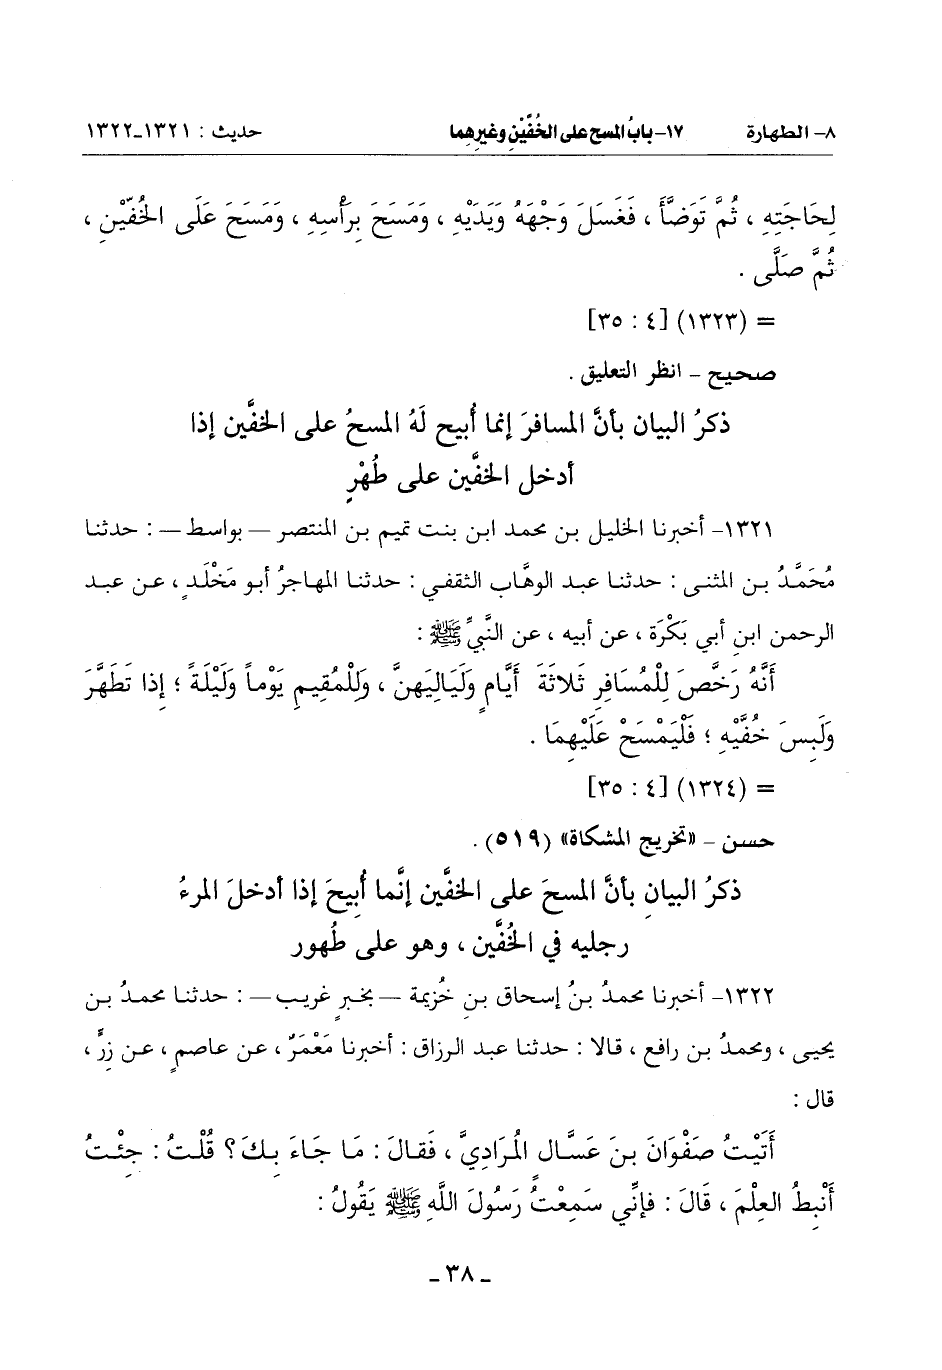 ٨- الطهارة ١٧- بابُ المسح على الخُفَّيْنِ وغيرهما حديث : ١٣٢١-١٣٢٢
لِحَاجَتِهِ ، ثُمَّ تَوَضَّأَ ، فَغَسَلَ وَجْهَهُ وَيَدَيْهِ ، وَمَسَحَ بِرَأْسِهِ ، وَمَسَحَ عَلَى الخُفَّيْنِ ،
ثُمَّ صَلَّى .
= (١٣٢٣) [٤ : ٣٥]
صحيح - انظر التعليق .
ذكرُ البيان بأنَّ المسافرَ إنما أُبيح لَهُ المسحُ على الخفَّين إذا
أدخل الخفَّين على طُهْرٍ
١٣٢١- أخبرنا الخليل بن محمد ابن بنت تميم بن المنتصر – بواسط – : حدثنا
مُحَمَّدُ بن المثنى : حدثنا عبد الوهَّاب الثقفي : حدثنا المهاجرُ أبو مَخْلَدٍ ، عن عبد
الرحمن ابنِ أبي بَكْرَةَ ، عن أبيه ، عن النَّبيِّ ﷺ :
أَنَّهُ رَخَّصَ لِلْمُسَافِرِ ثَلاثَةَ أَيَّامٍ وَلَيَالِيَهنَّ ، وَلِلْمُقِيمِ يَوْماً وَلَيْلَةً ؛ إِذا تَطَهَّرَ
وَلَبِسَ خُفَّيْهِ ؛ فَلْيَمْسَحْ عَلَيْهِمَا .
= (١٣٢٤) [٤ : ٣٥]
حسن - «تخريج المشكاة» (٥١٩) .
ذكرُ البيانِ بأنَّ المسحَ على الخفَّين إنَّما أُبِيحَ إذا أدخلَ المرءُ
رجليه في الخُفَّين ، وهو على طُهور
١٣٢٢- أخبرنا محمدُ بنُ إسحاق بنِ خُزيمة – بخبرٍ غريب – : حدثنا محمدُ بن
يحيى ، ومحمدُ بن رافع ، قالا : حدثنا عبد الرزاق : أخبرنا مَعْمَرٌ ، عن عاصمٍ ، عن زِرٍّ ،
قال :
أَتَيْتُ صَفْوَانَ بنَ عَسَّالٍ الُمرَادِيَّ ، فَقالَ : مَا جَاءَ بِكَ؟ قُلْتُ : جِئْتُ
أَنْبِطُ العِلْمَ ، قَالَ : فإنِّي سَمِعْتُ رَسُولَ اللَّهِ ﷺ يَقُولُ :
- ٣٨ -